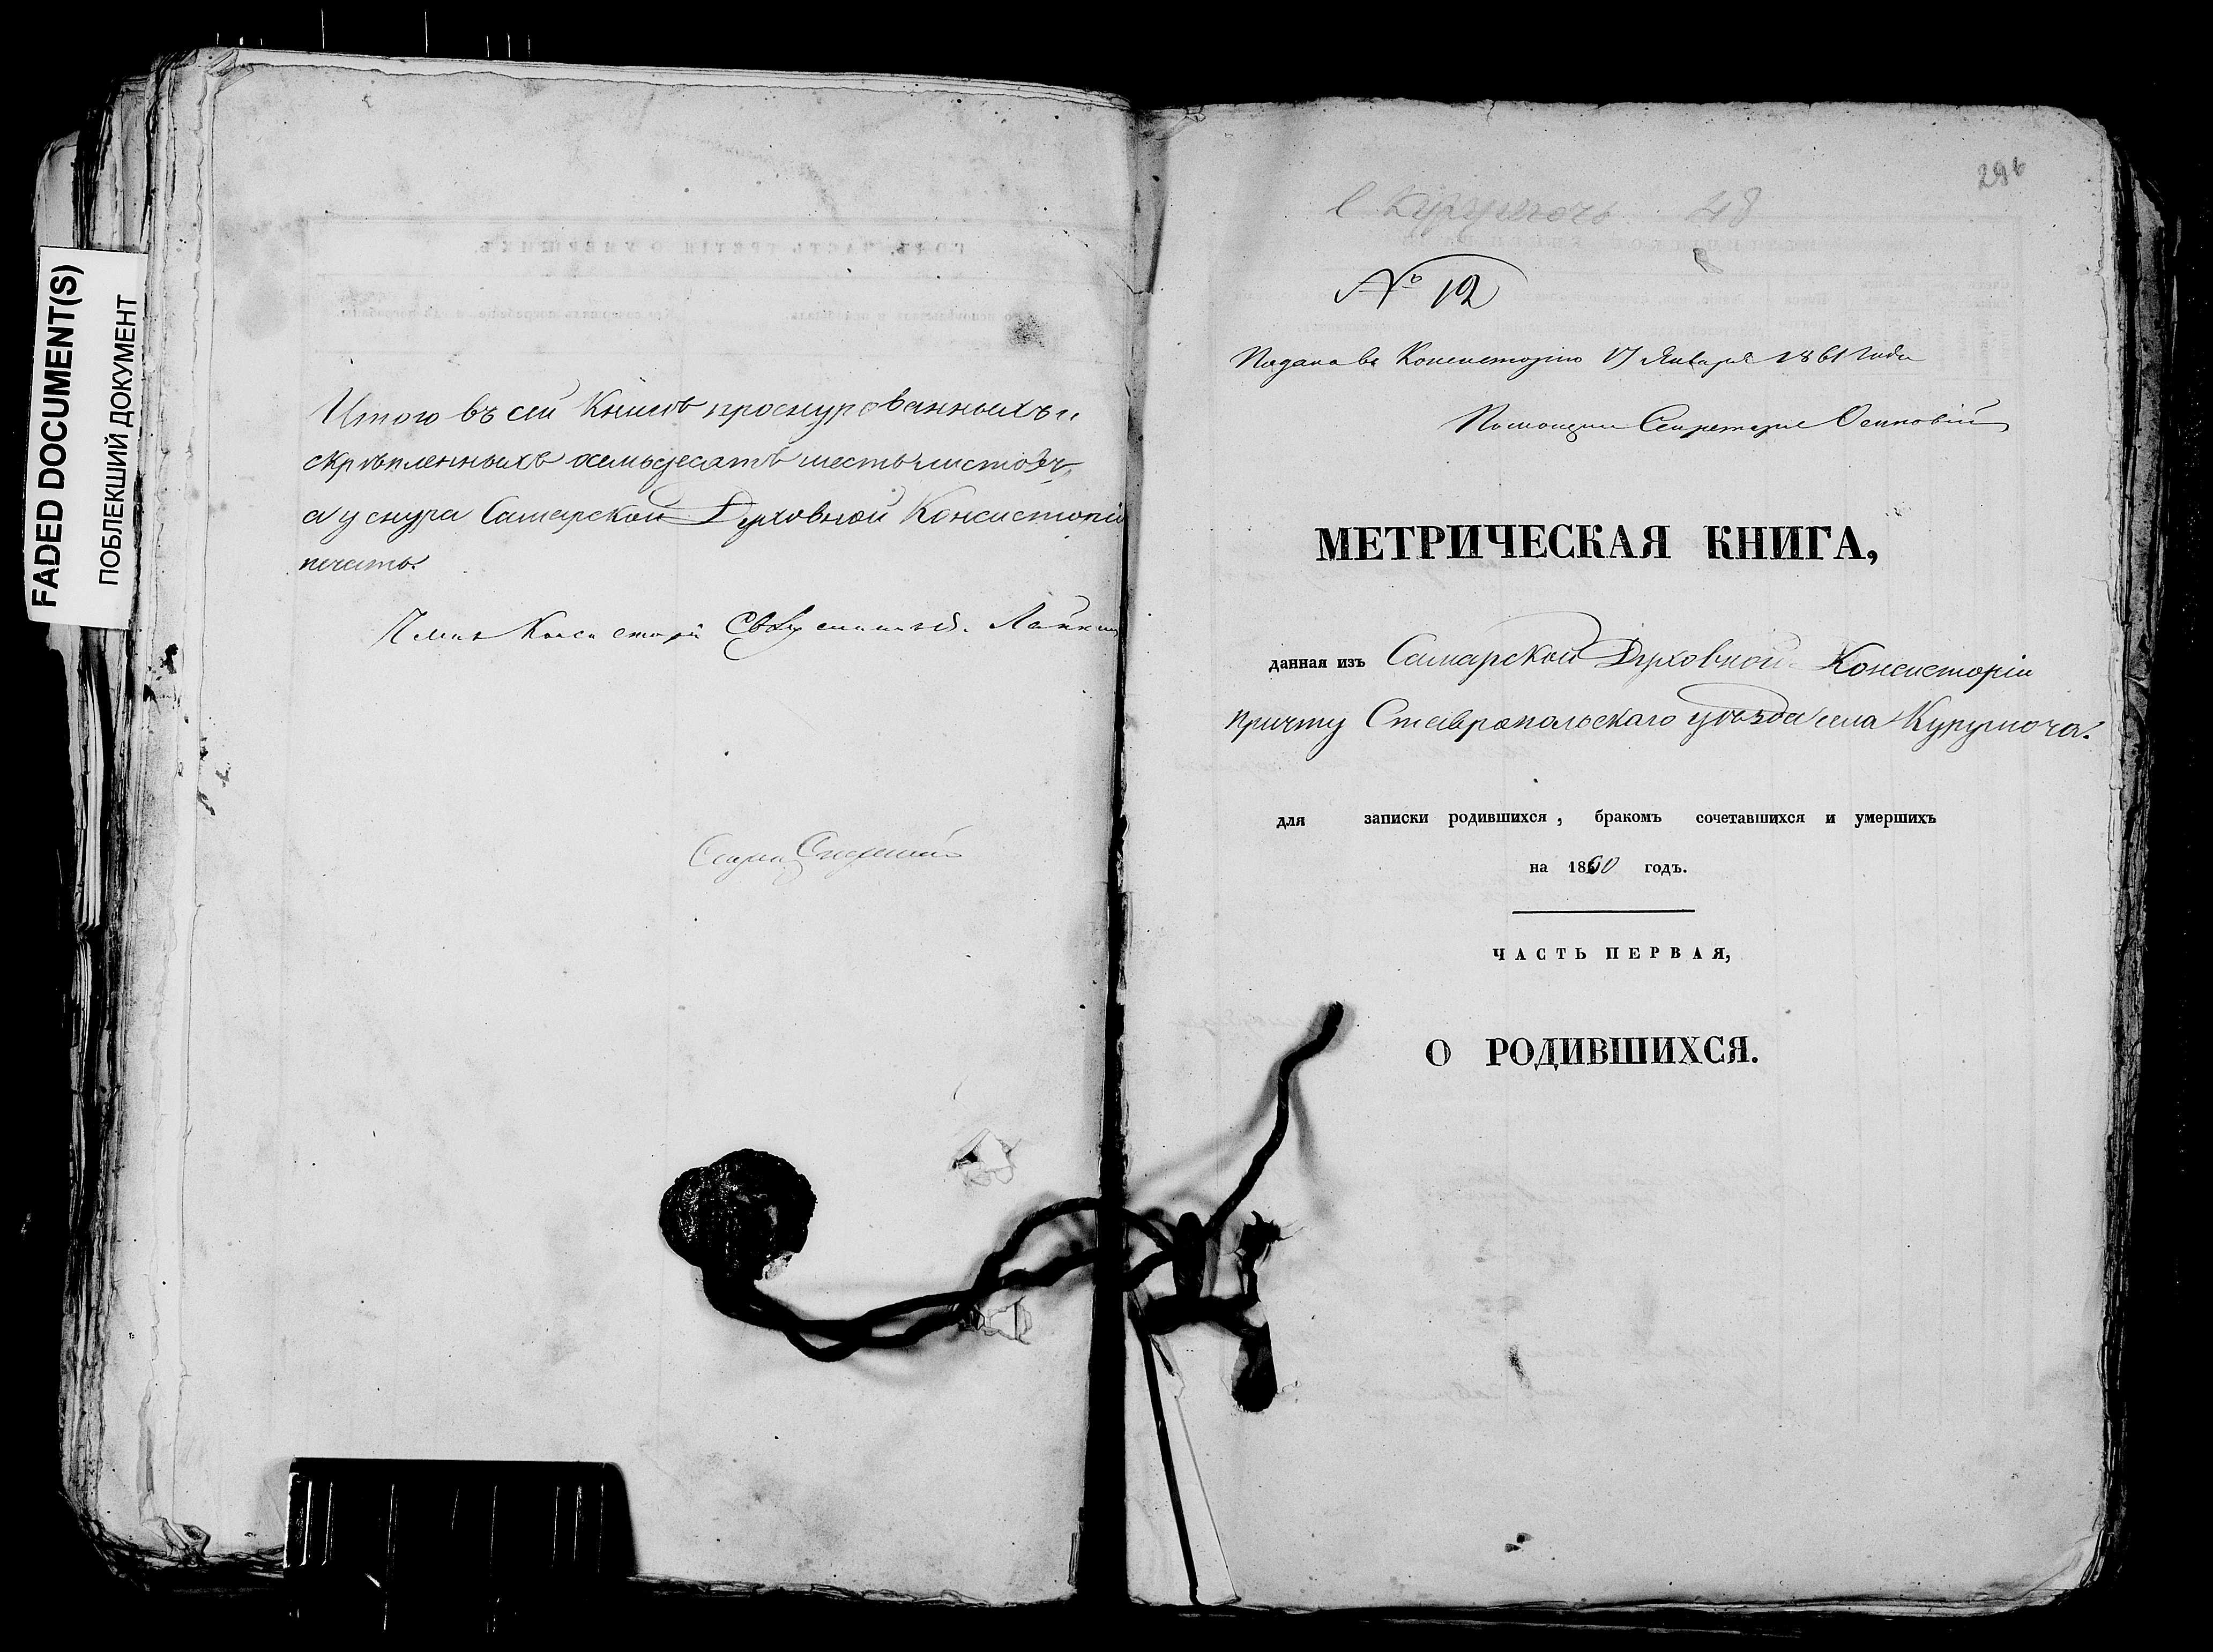 FADED DOCUMENT(S)
ПОБЛЕКШИЙ ДОКУМЕНТ
Итого въ сей Книгѣ прошнурованныхъ и
скрѣпленныхъ осемьдесятъ шесть листовъ,
а у снура Самарской Духовной Консисторіи
печать.
Членъ Консисторіи Священникъ
296
с. Курумочь 48
№ 12
Подана въ Консисторію 17 Января 1861 года
Секретаря
МЕТРИЧЕСКАЯ КНИГА,
данная изъ Самарской Духовной Консисторіи
причту Ставропольскаго уѣзда села Курумоча.
для записки родившихся, бракомъ сочетавшихся и умершихъ
на 1860 годъ.
ЧАСТЬ ПЕРВАЯ,
О РОДИВШИХСЯ.